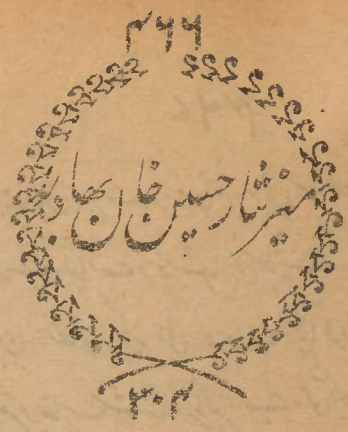 ۴۶۶
میر نثار حسین خان بهادر
۳۰۴